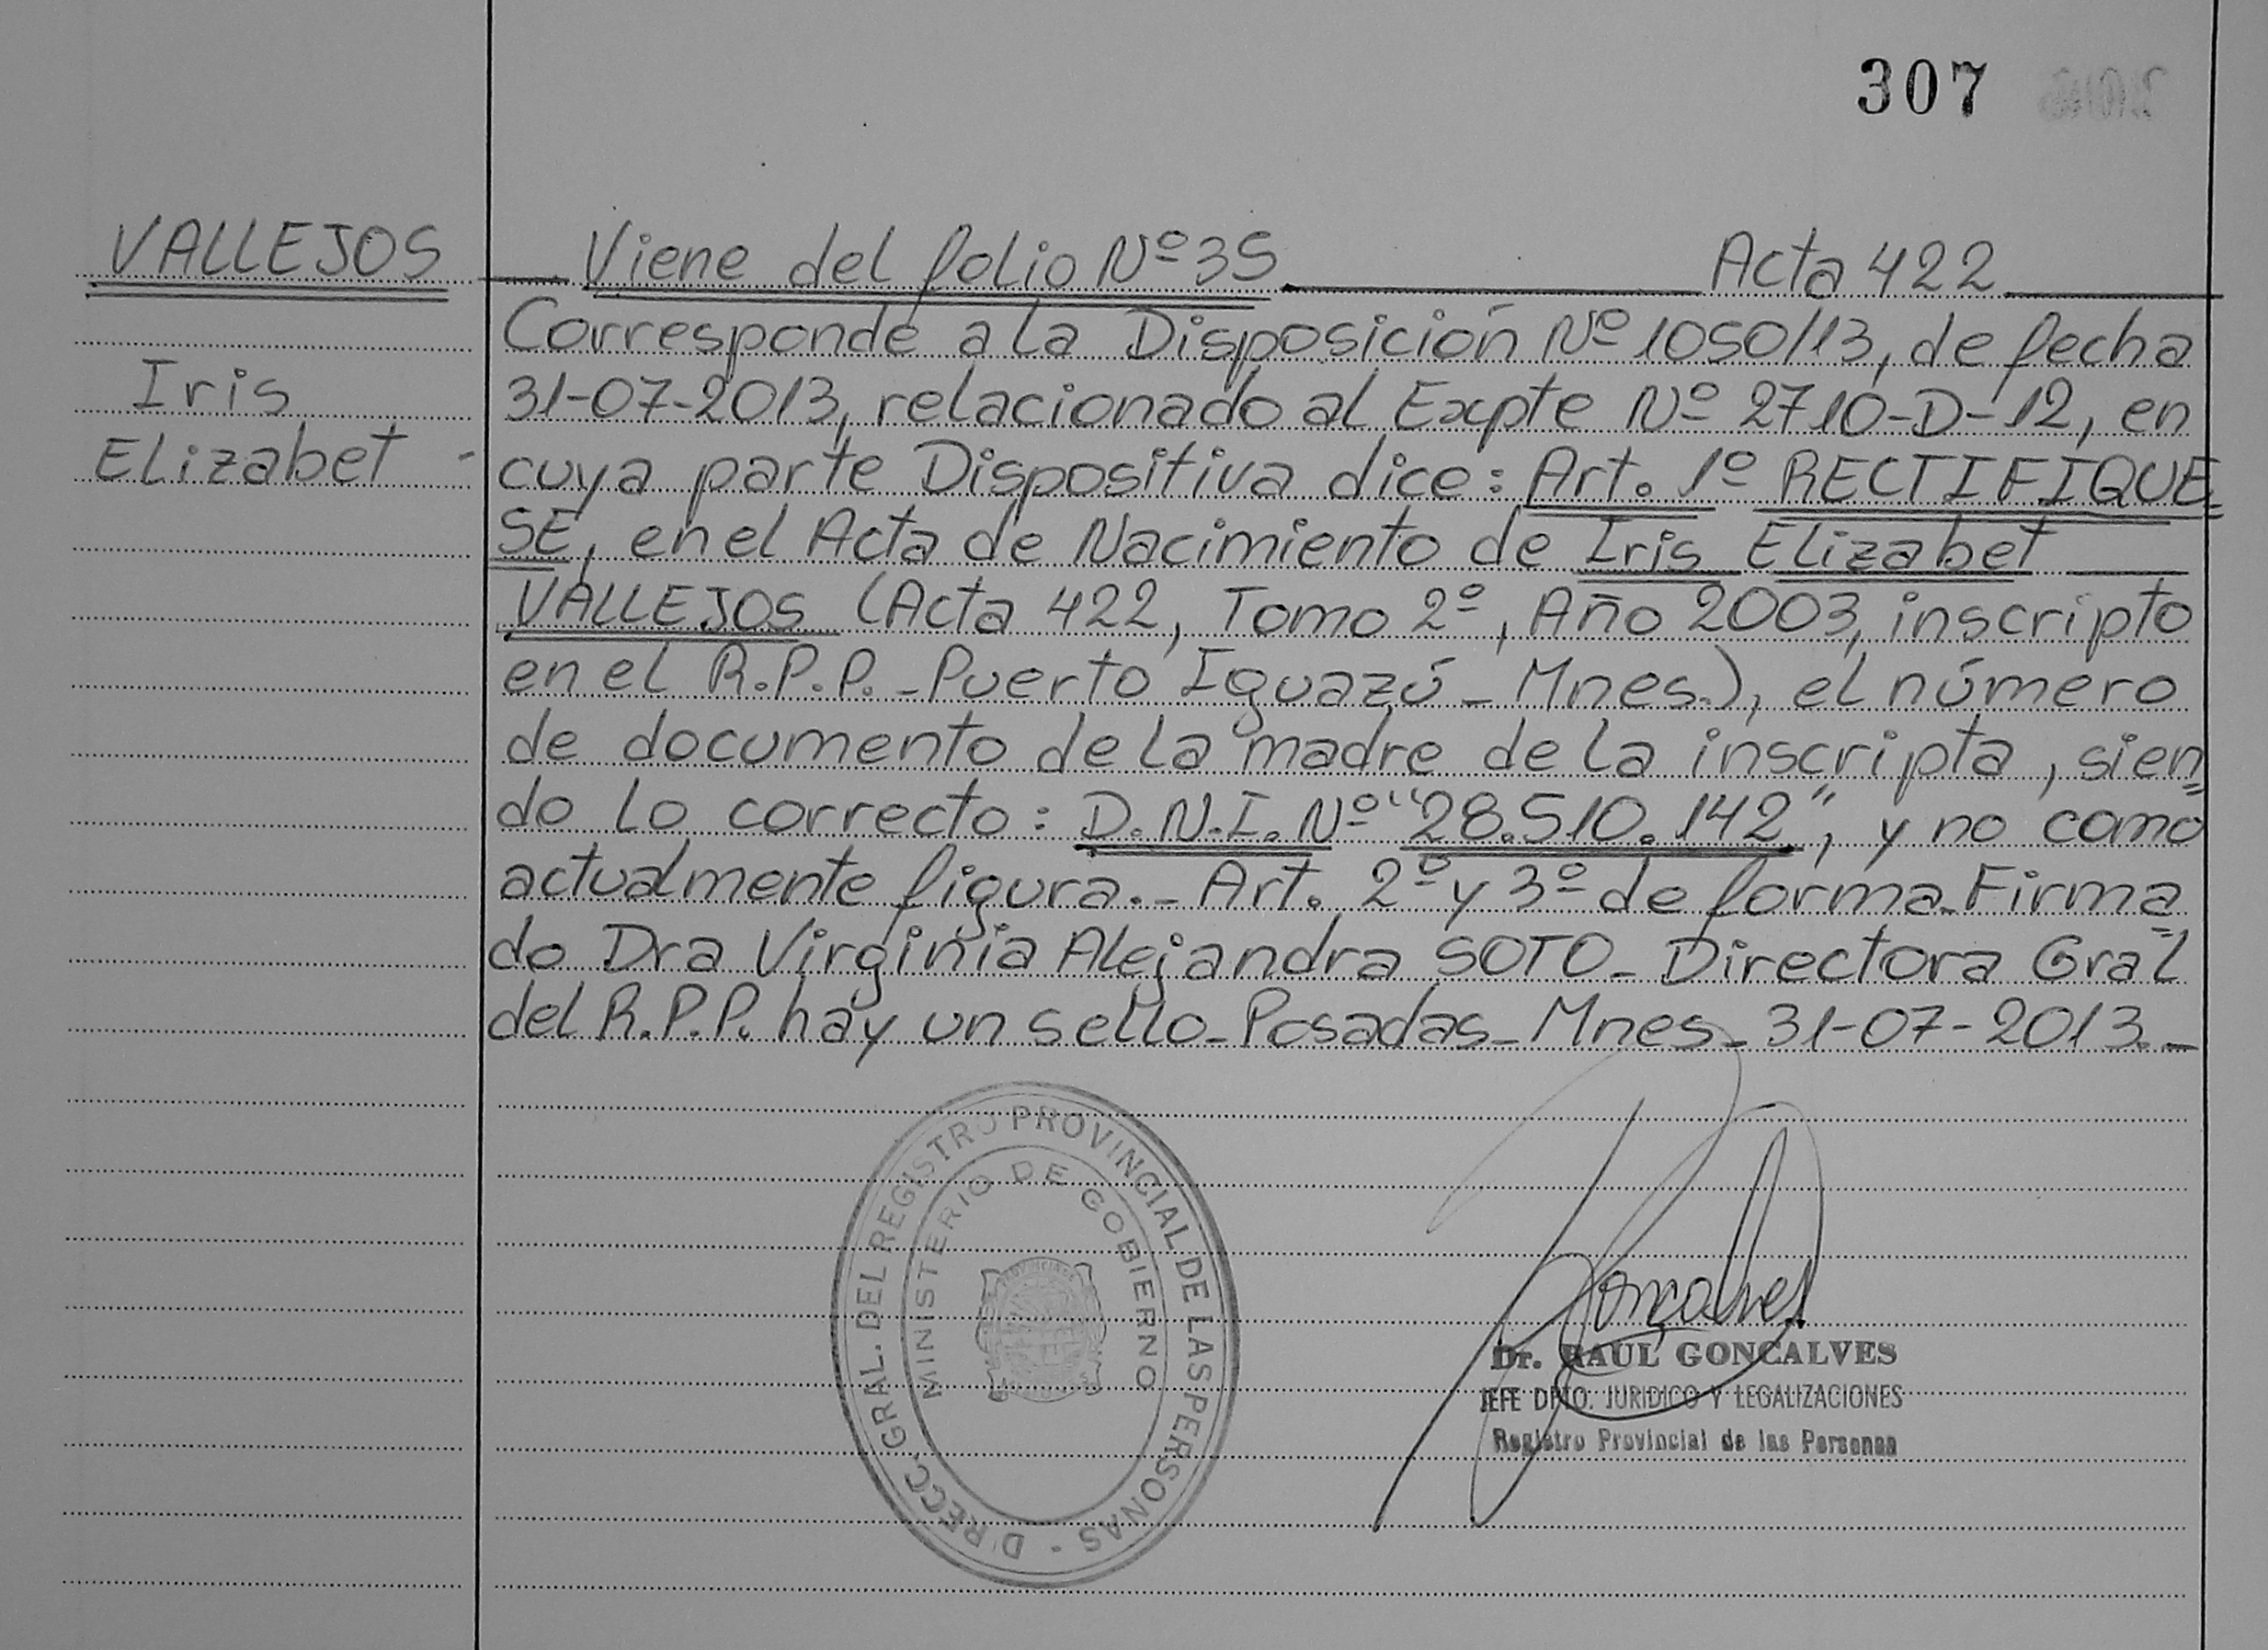 307
VALLEJOS
Iris
Elizabet -
Viene del folio Nº 35 Acta 422
Corresponde a la Disposición Nº 1050/13, de fecha
31-07-2013, relacionado al Expte Nº 2710-D-12, en
cuya parte Dispositiva dice: Art. 1º RECTIFIQUE=
SE, en el Acta de Nacimiento de Iris Elizabet
VALLEJOS (Acta 422, Tomo 2º, Año 2003, inscripto
en el R.P.P. - Puerto Iguazú - Mnes.), el número
de documento de la madre de la inscripta, sien=
do lo correcto: D.N.I. Nº "28.510.142", y no como
actualmente figura.- Art. 2º y 3º de forma - Firma=
do Dra Virginia Alejandra SOTO - Directora Gral
del R.P.P. hay un sello - Posadas - Mnes - 31-07-2013.-
DIRECC. GRAL. DEL REGISTRO PROVINCIAL DE LAS PERSONAS -
MINISTERIO DE GOBIERNO
Goncalves
Dr. RAUL GONCALVES
JEFE DPTO. JURIDICO Y LEGALIZACIONES
Registro Provincial de las Personas